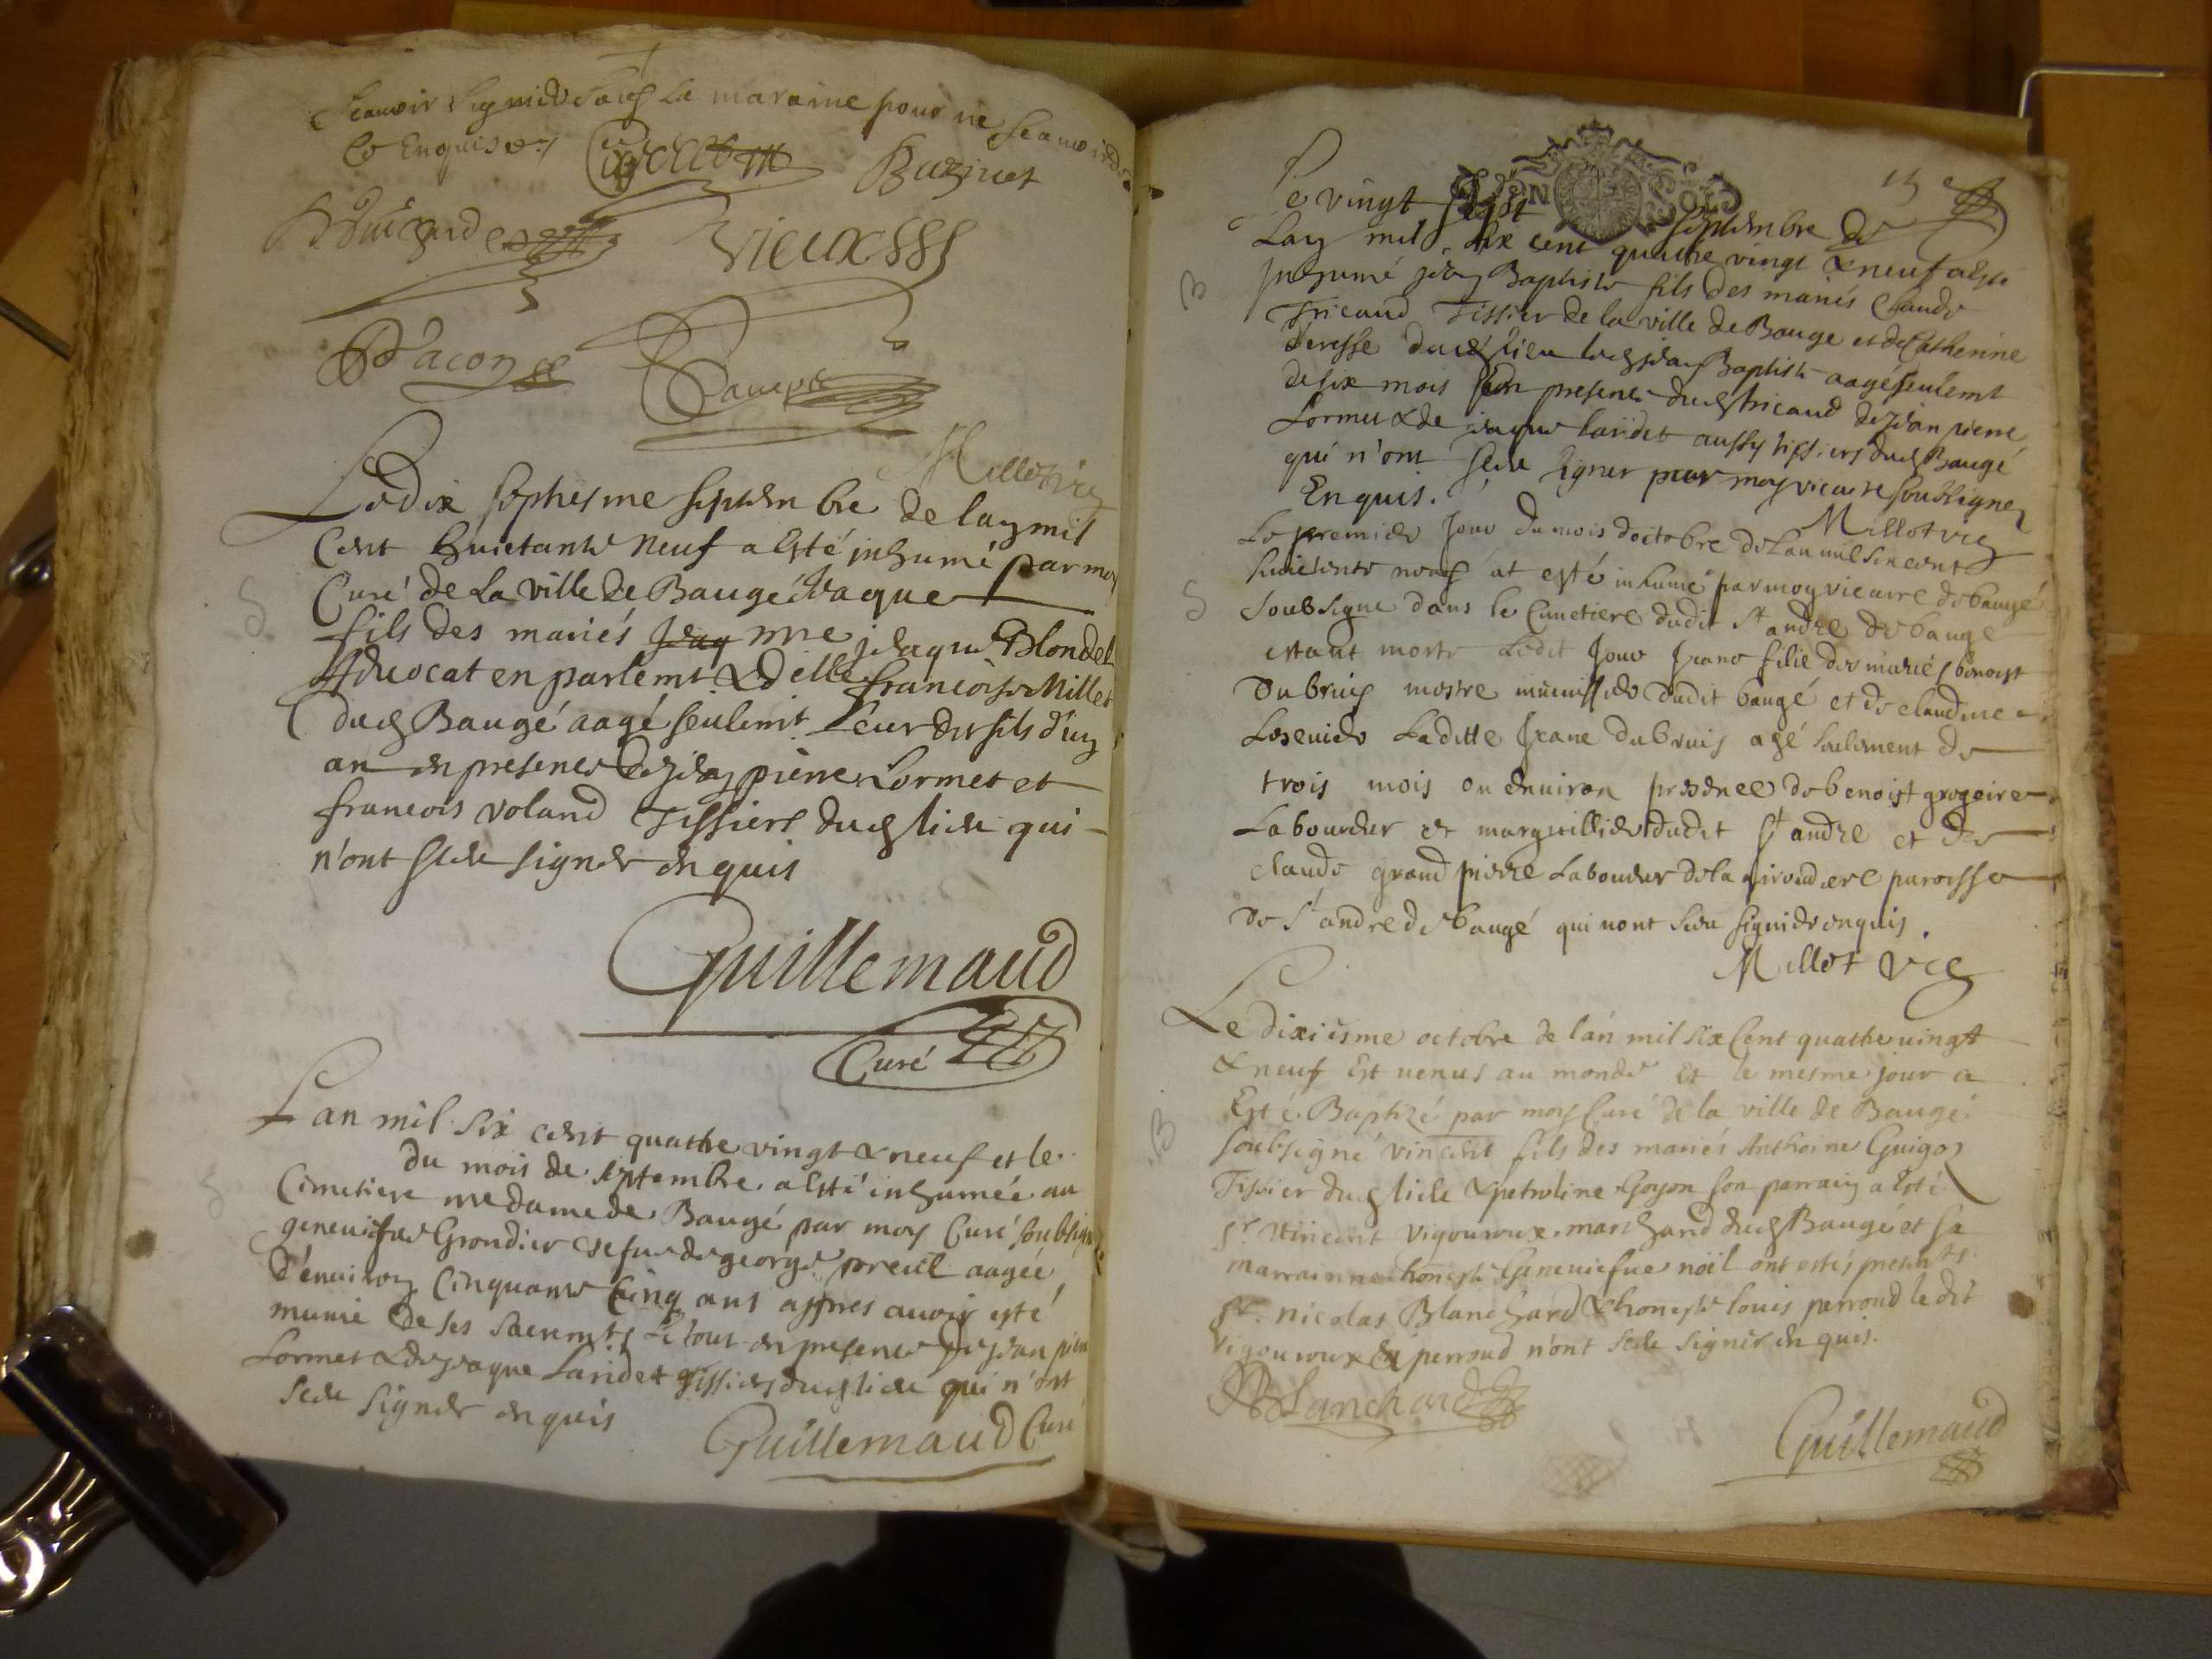 scauoir signer sauf la maraine pour ne scauoir
Et Enquis
Buzinet
Vieux
Dacon
Millot vic
Le dix septiesme septembre de lan mil
Cent huictante neuf a Esté inhumé par moy
Curé de La ville de Baugé Jeaque
fils des mariés Jean me jeaque Blondel
Aduocat en parlemt & delle francoise Millet
dud Baugé aagé seulemt Leur dit fils d'un
an en presence de jean pierre Lormet et
francois Voland Tissiers dud lieu qui
n'ont sceu signer en quis
Guillemaud
Curé
Lan mil six cent quattre vingt & neuf et le
du mois de septembre a esté inhumée au
Cimetiere nre dame de Baugé par moy Curé soubsigné
geneuiefue Grondier vefue de george preut aagée
d'enuiron Cinquante Cinq ans apres auoir esté
munie de ses sacremts Le tout en presence de jean pierre
Lormet & de jeaque Laridet Tissiers dud lieu qui n'ont
sceu signer en quis
Guillemaud Curé
Le vingt sept septembre de
Lan mil six cent quattre vingt & neuf a esté
jnhumé jean Baptiste fils des mariés Claude
Tricaud Tissier de la ville de Bauge et de Catherine
deresse dud lieu led jean Baptiste aagé seulemt
de six mois en presence dud tricaud de jean pierre
Lormet & de jeaque laridet aussy tissiers dud Baugé
qui n'ont sceu signer par moy vicaire soubsigne
En quis.
Millot vic
Le premier jour du mois doctobre de Lan mil six cent
huictante neuf at esté inhumé par moy vicaire de baugé
soubsigne dans le Cimetiere dudit St andre de baugé
estant morte Ledit jour jeane fille des mariés benoist
Dubruis mestre dudit baugé et de claudine
Laditte jeane dubruis agé seulement de
trois mois ou enuiron presence de benoist
Laboureur et marguillier dudit St andre et de
claude grand pierre Laboureur de la giroudiere paroisse
De St andre de baugé qui nont sceu signer enquis.
Millot vic
Le dixiesme octobre de lan mil six Cent quattre uingt
& neuf Est uenus au monde et le mesme jour a
Esté Baptizé par moy Curé de la ville de Baugé
soubsigné vincent fils des mariés Anthoine Guigon
Tissier dud lieu & petroline Goyon son parrain a Esté
sr Vincent Vigouroux marchand dud Baugé et sa
marrainne honeste Geneuiefue noël ont estés presents
sr. nicolas Blanchard & honeste louis perroud le dit
Vigouroux & perroud n'ont sceu signer en quis.
Blanchard
Guillemaud